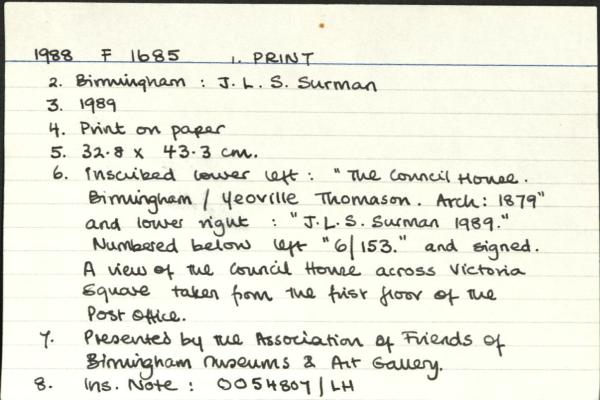 1988 F 1685 1. PRINT
2. Birmingham : J. L. S. Surman
3. 1989
4. Print on paper
5. 32.8 x 43.3 cm.
6. Inscribed lower left : "The Council House.
Birmingham / Yeoville Thomason. Arch: 1879"
and lower right : "J.L.S. Surman 1989."
Numbered below left "6/153." and signed.
A view of the Council House across Victoria
Square taken from the first floor of the
Post Office.
7. Presented by the Association of Friends of
Birmingham Museums & Art Gallery.
8. Ins. Note : 0054807/LH